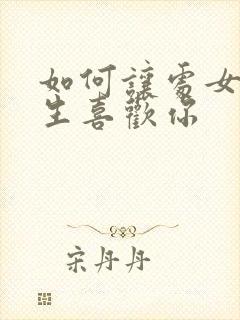 如何讓處女
生喜歡你
宋丹丹